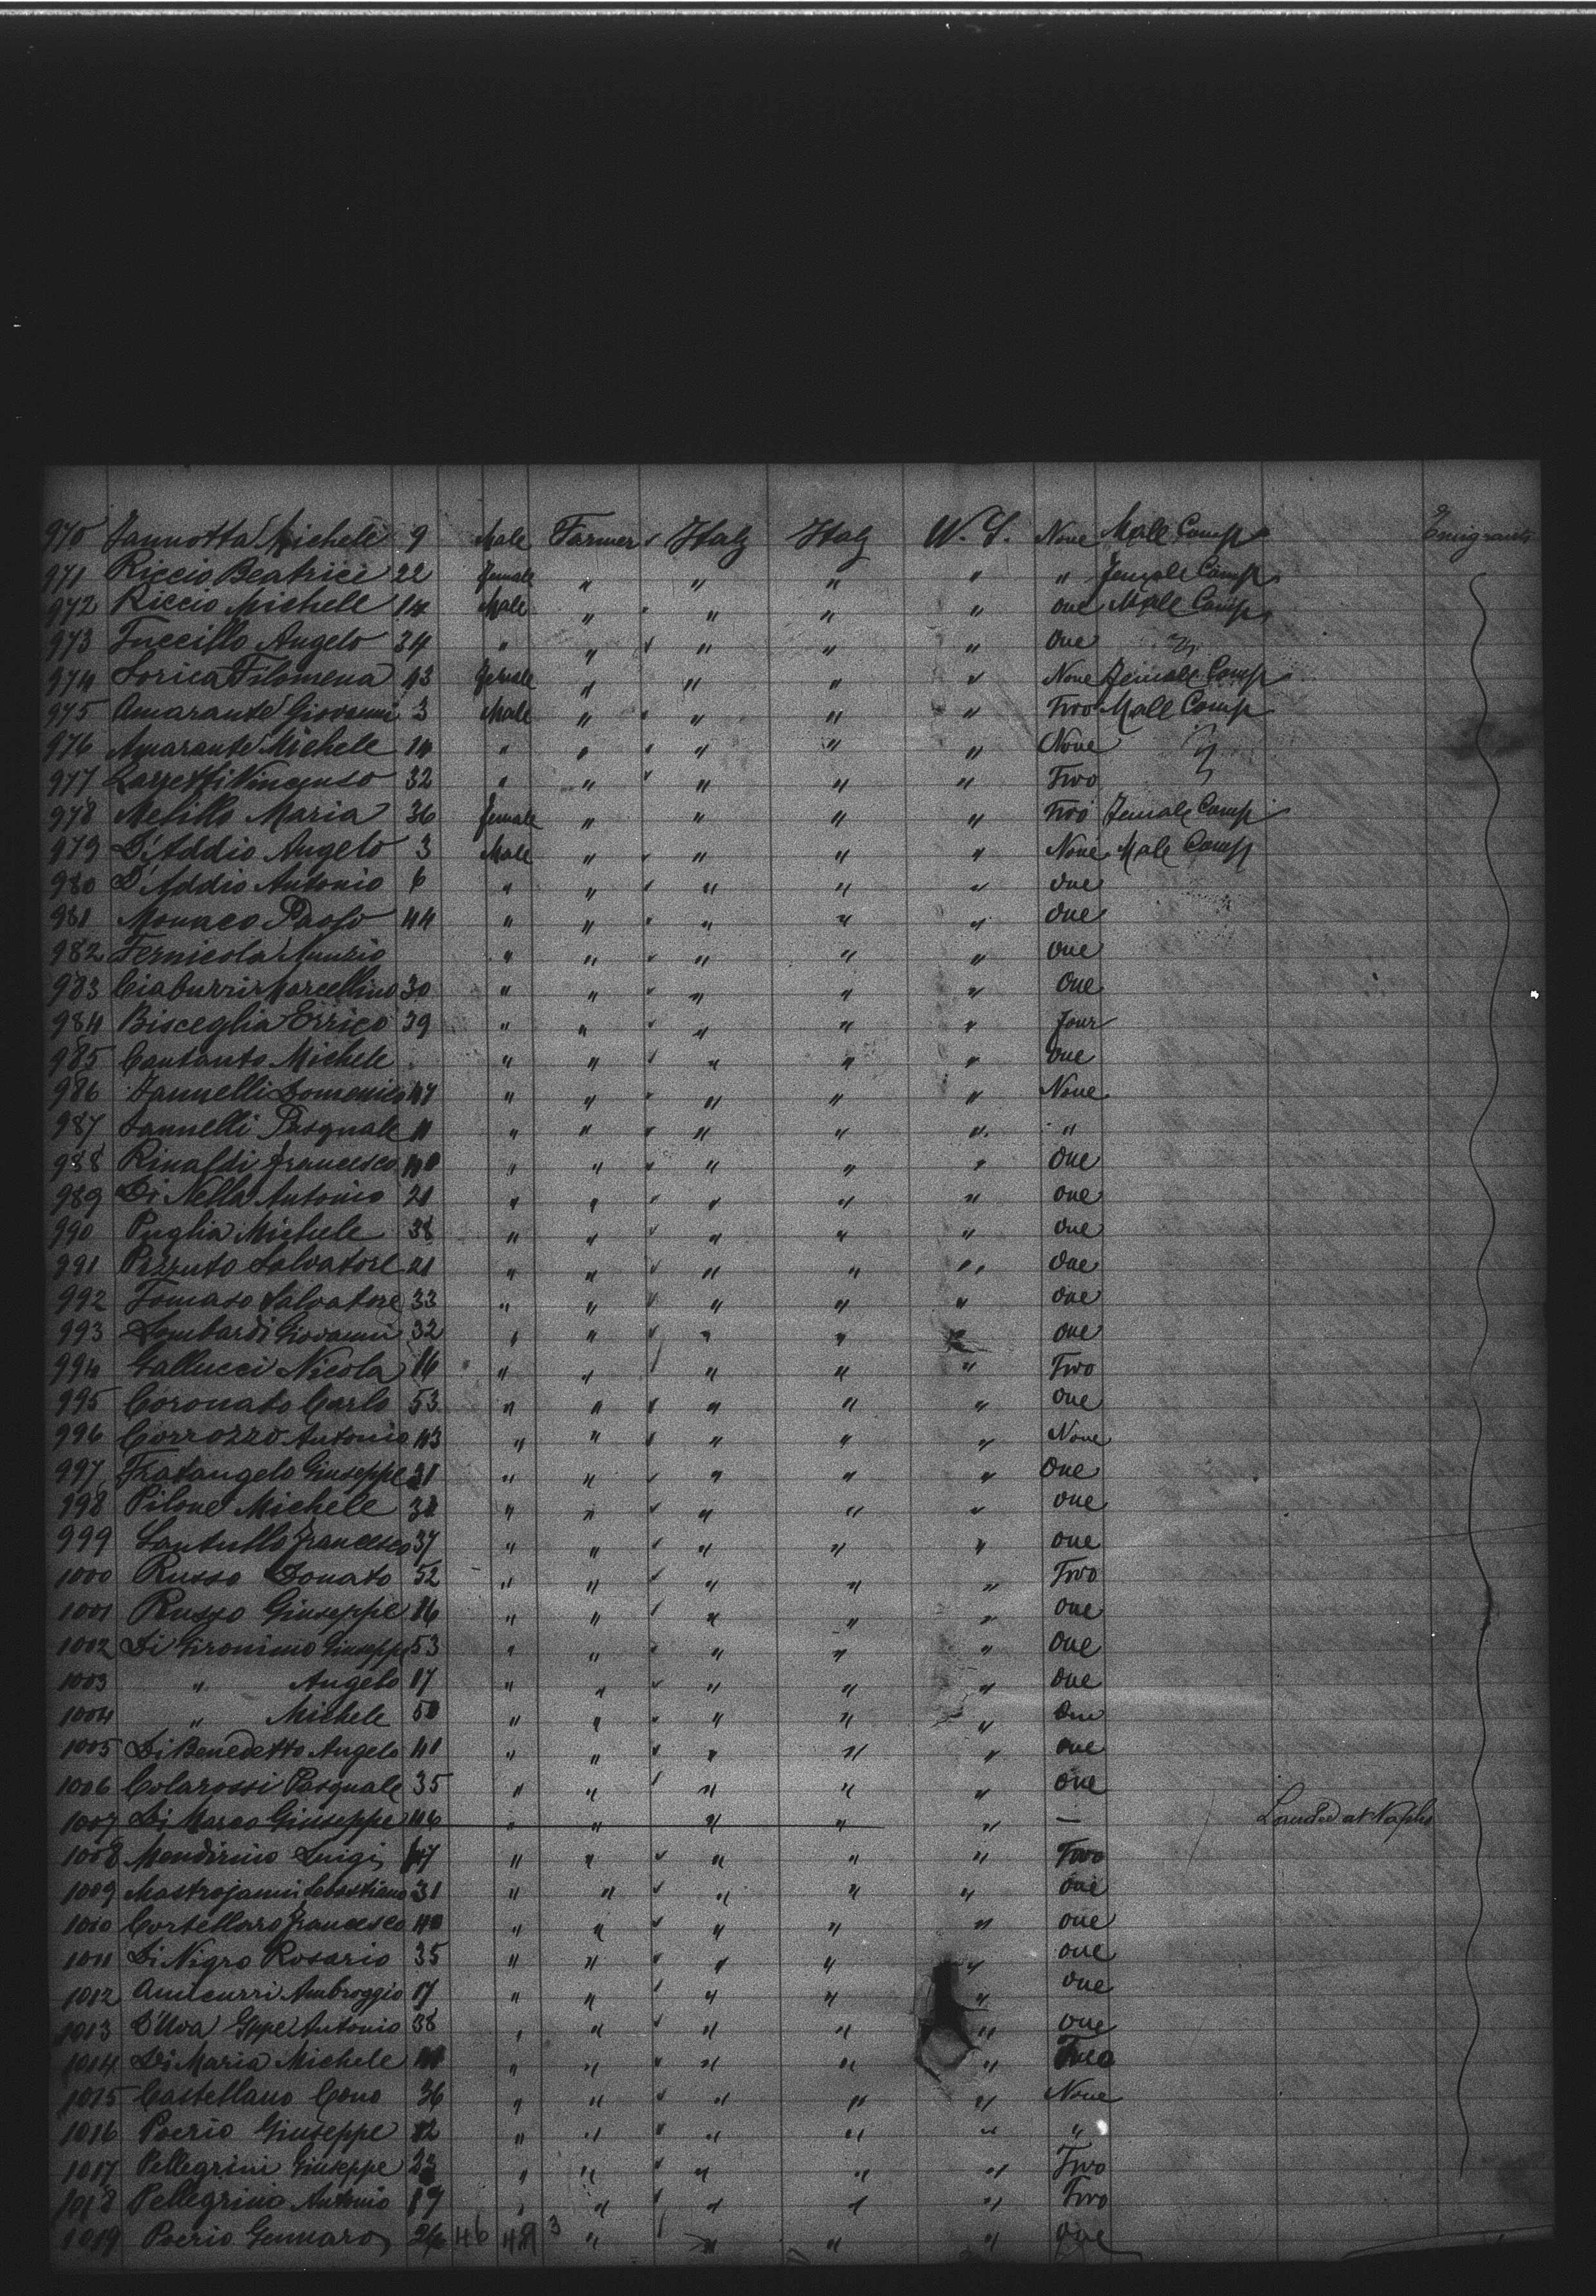 970 Jannotta Michele 9 Male Farmer Italy Italy W. S. None Male Comp Emigrants
971 Riccio Beatrice 22 female " " " " " Female Comp
972 Riccio Michele 14 Male " " " " one Male Comp
973 Tuccillo Angelo 34 " " " " " one
974 Lorica Filomena 43 female " " " " None Female Comp
975 Amarante Giovanni 3 Male " " " " Two Male Comp
976 Amarante Michele 14 " " " " " None
977 Vincenso 32 " " " " " Two
978 Melillo Maria 36 female " " " " Two Female Comp
979 D'Addio Angelo 3 Male " " " " None Male Comp
980 D'Addio Antonio 6 " " " " " one
981 Monaco 44 " " " " " one
982 Fernicola Nunzio " " " " " one
983 Ciaburri Marcellino 30 " " " " " one
984 Bisceglia Errico 39 " " " " " four
985 Cantanto Michele " " " " " one
986 Jannelli Domenico 47 " " " " " None
987 Jannelli Pasquale 11 " " " " " "
988 Rinaldi Francesco 40 " " " " " one
989 Di Nella Antonio 21 " " " " " one
990 Puglia Michele 38 " " " " " one
991 Pezzuto Salvatore 21 " " " " " one
992 Tomaso Salvatore 33 " " " " " one
993 Lombardi Giovanni 32 " " " " " one
994 Gallucci Nicola 16 " " " " " Two
995 Coronato Carlo 53 " " " " " one
996 Corrozzo Antonio 43 " " " " " None
997 Fratangelo Giuseppe 31 " " " " " One
998 Pilone Michele " " " " " one
999 Santullo Francesco 37 " " " " " one
1000 Russo Donato 52 " " " " " Two
1001 Russo Giuseppe 16 " " " " " one
1002 Di Gironimo Giuseppe 53 " " " " " one
1003 " Angelo 17 " " " " " one
1004 " Michele 50 " " " " " One
1005 Di Benedetto Angelo 41 " " " " " one
1006 Colarossi Pasquale 35 " " " " " one
1007 Di Marco Giuseppe 46 " " " " " — Landed at Naples
1008 Mondirino Luigi 47 " " " " " Two
1009 Mastrojanni Sebastiano 31 " " " " " one
1010 Cortellaro Francesco 40 " " " " " one
1011 Di Nigro Rosario 35 " " " " " one
1012 Amicurri Ambroggio 17 " " " " " one
1013 D'Uva Gppe Antonio 38 " " " " " one
1014 Di Maria Michele " " " " "
1015 Castellano Cono 36 " " " " " None
1016 Poerio Giuseppe 12 " " " " " "
1017 Pellegrini Giuseppe 23 " " " " " Two
1018 Pellegrino Antonio 19 " " " " " Two
1019 Poerio Gennaro 46 3 " " " " one